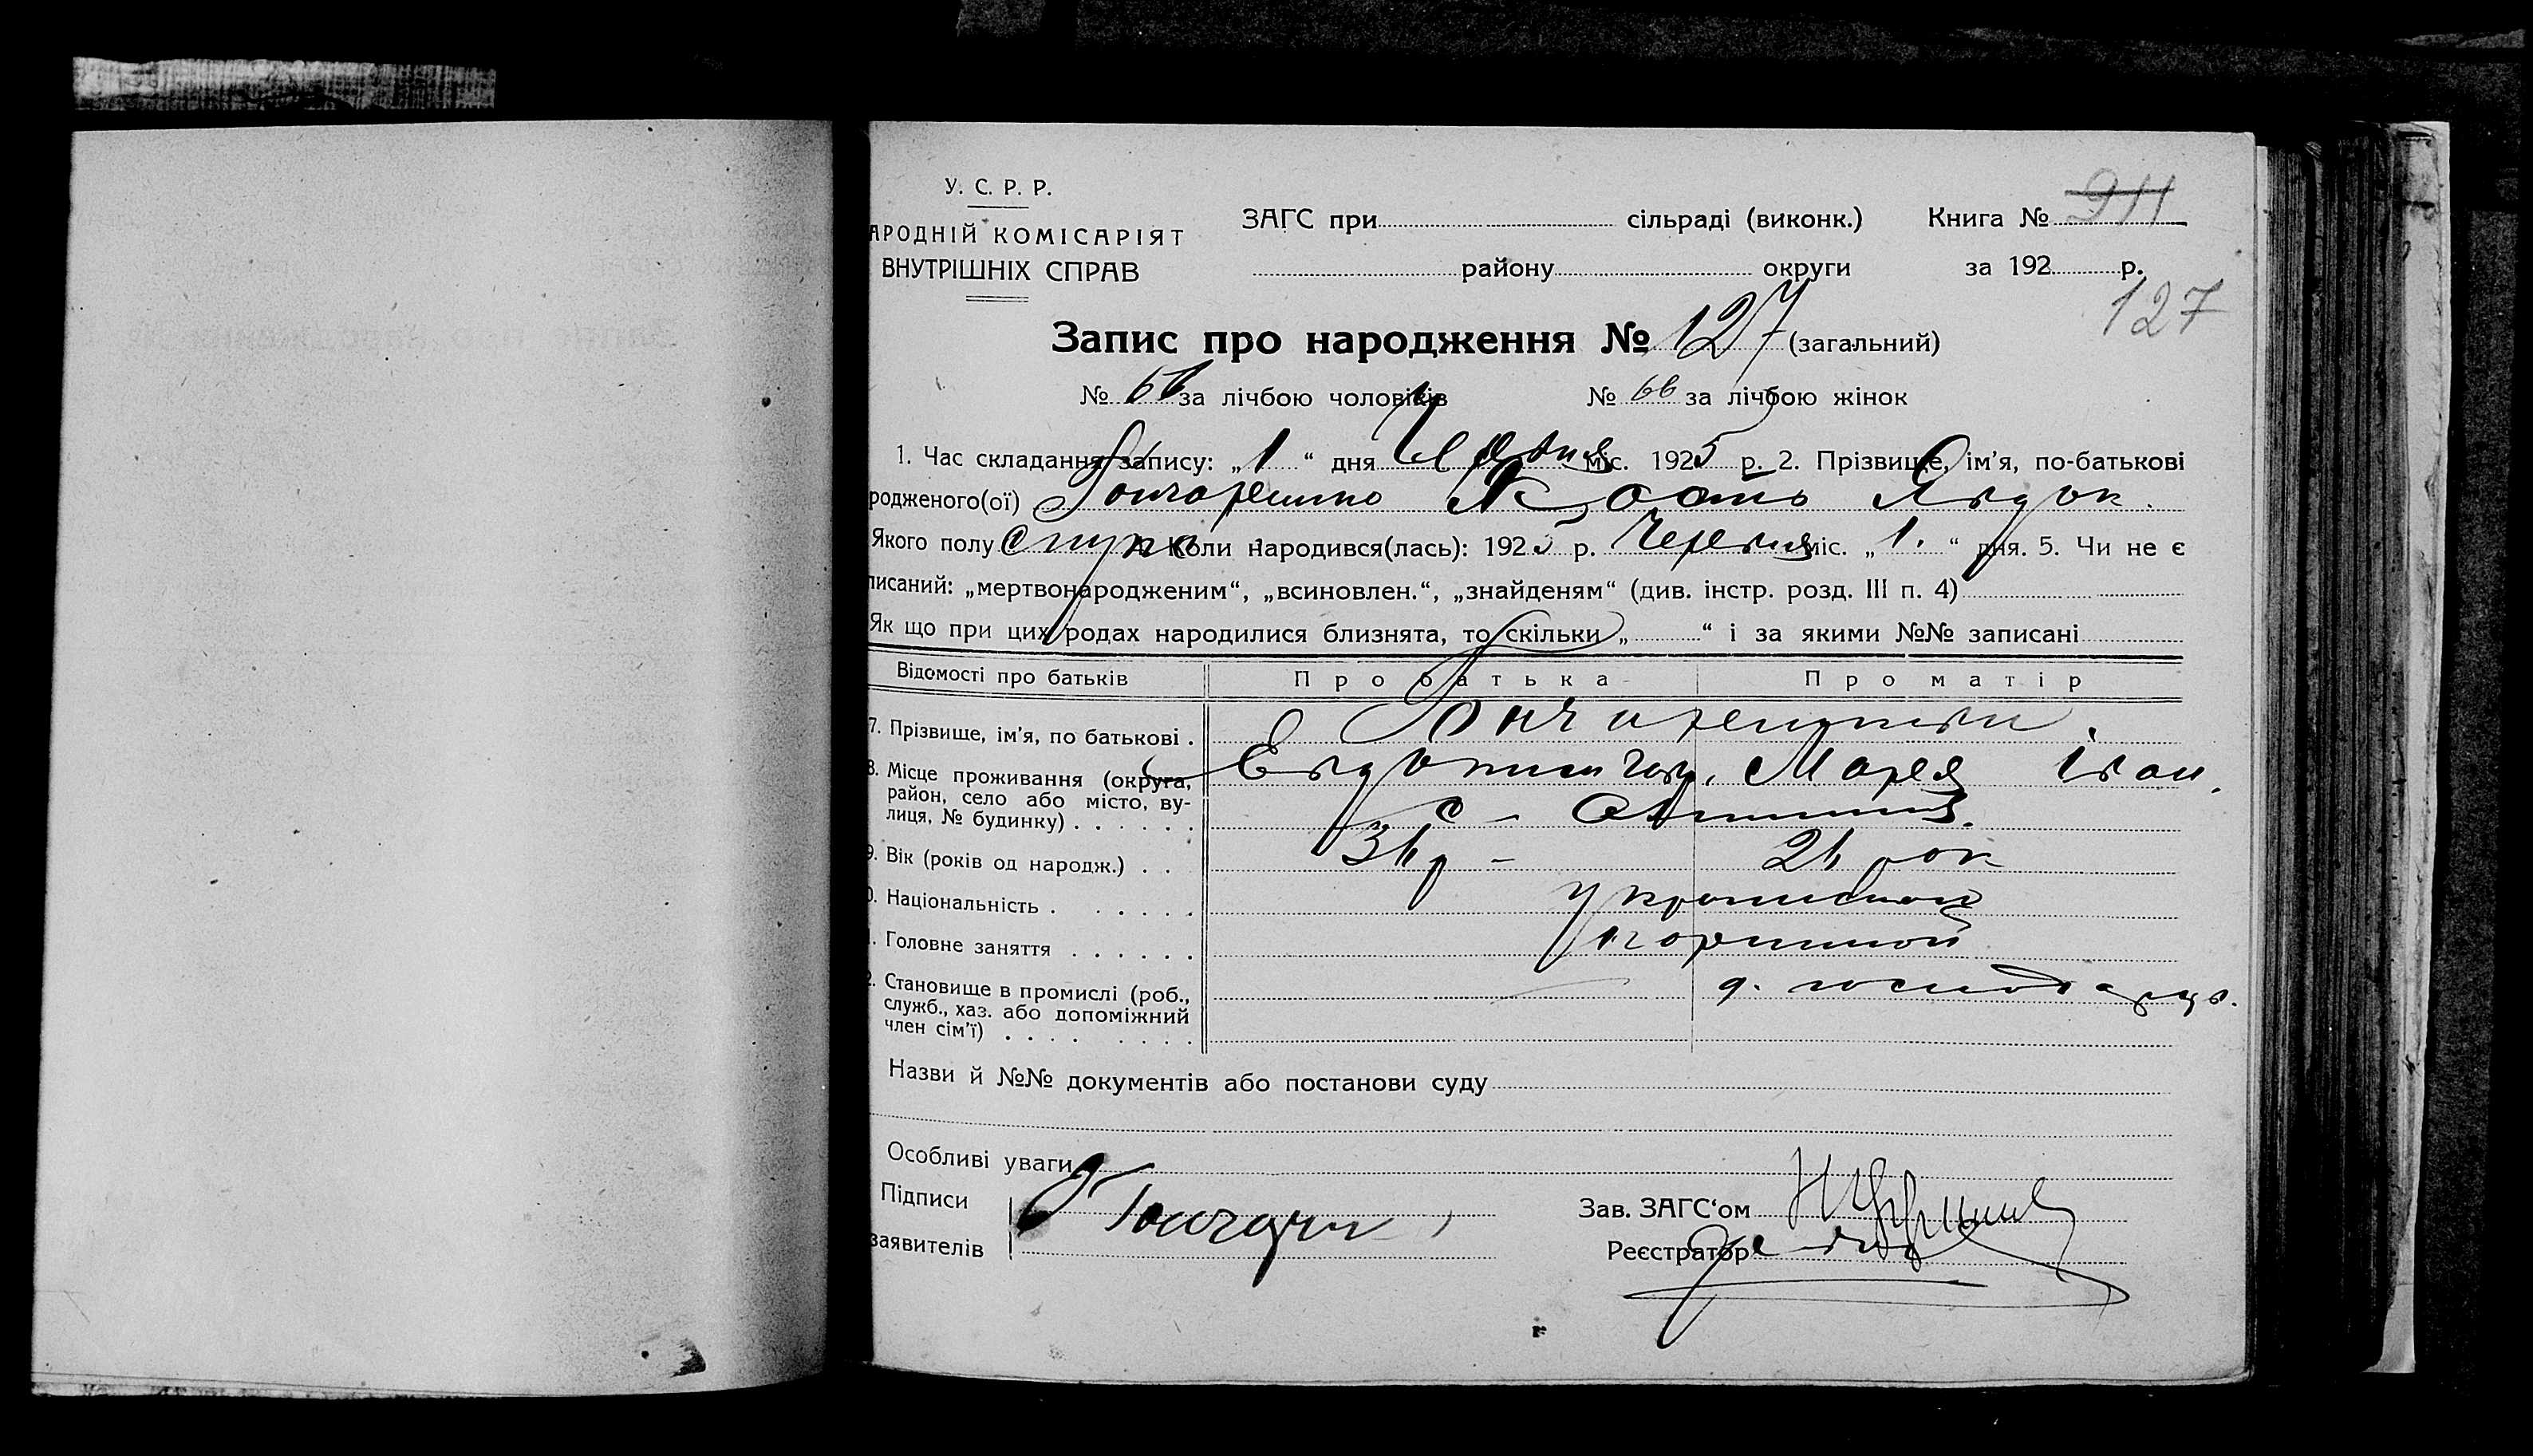 У. С. Р. Р.
АРОДНІЙ КОМІСАРІЯТ
ВНУТРІШНІХ СПРАВ
ЗАГС при сільраді (виконк.) Книга № 911
району округи за 192 р.
127
Запис про народження № 127 (загальний)
№ за лічбою чоловіків № 66 за лічбою жінок
1. Час складання запису: „ 1 “ дня Червня міс. 1925 р. 2. Прізвище, ім'я, по-батькові
родженого(ої) Гончаренко Кость Явдок.
Якого полу 4. Коли народився(лась): 1925 р. Червня міс. „ 1. “ дня. 5. Чи не є
писаний: „мертвонародженим“, „всиновлен.“, „знайденям“ (див. інстр. розд. III п. 4)
Як що при цих родах народилися близнята, то скільки „ “ і за якими №№ записані
Відомості про батьків Про батька Про матір
7. Прізвище, ім'я, по батькові . Гончаренки.
8. Місце проживання (округа, Марія Іван.
район, село або місто, ву-
лиця, № будинку) . . . . . . с
9. Вік (років од народж.) . . 36 р 26 рок
0. Національність . . . . . .
1. Головне заняття . . . . . .
2. Становище в промислі (роб.,
служб., хаз. або допоміжний
член сім'ї) . . . . . . . .
Назви й №№ документів або постанови суду
Особливі уваги
Підписи
заявителів
Зав. ЗАГС'ом
Реєстратор